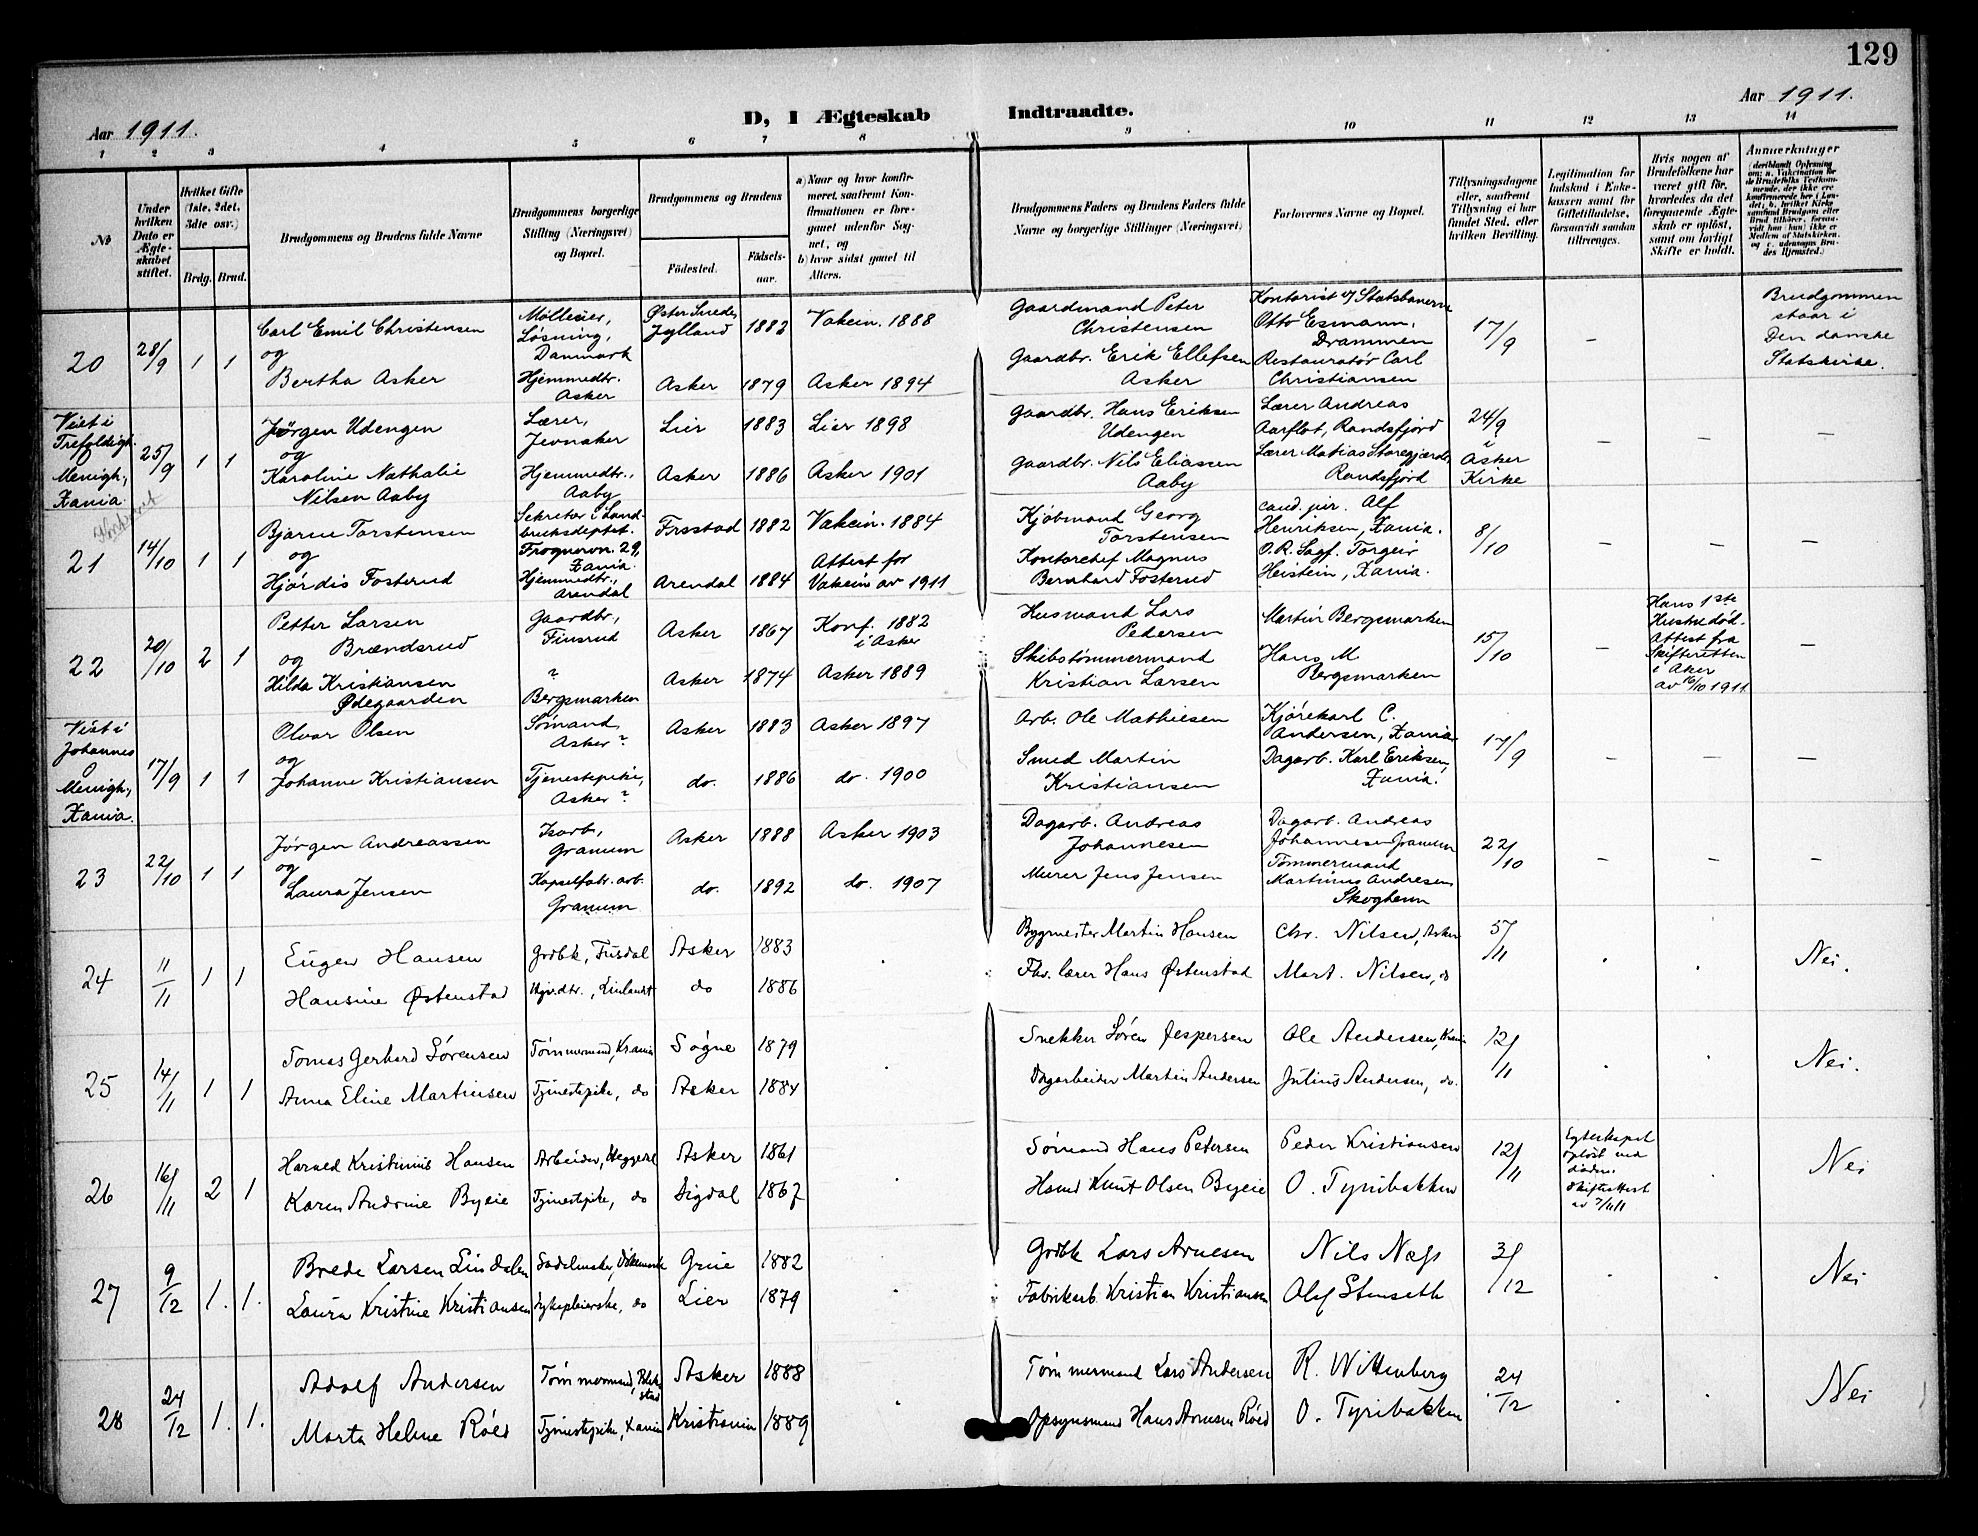 129
Aar 1911.
D, I Ægteskab Indtraadte.
Aar 1911.
1 2 3 4 5 6 7 8 9 10 11 12 13 14
No
Under hvilken Dato er Ægteskabet stiftet.
Hvilket Gifte (1ste, 2det, 3dte osv.)
Brdg. Brud.
Brudgommens og Brudens fulde Navne
Brudgommens borgerlige Stilling (Næringsvei) og Bopæl.
Brudgommens og Brudens
Födested.
Födselsaar.
a) Naar og hvor konfirmeret, saafremt Konfirmationen er foregaaet udenfor Sognet, og
b) hvor sidst gaaet til Alters.
Brudgommens Faders og Brudens Faders fulde Navne og borgerlige Stillinger (Næringsvei)
Forlovernes Navne og Bopæl.
Tillysningsdagene eller, saafremt Tillysning ei har fundet Sted, efter hvilken Bevilling.
Legitimation for Indskud i Enkekassen samt for Giftetilladelse, forsaavidt saadan tiltrænges.
Hvis nogen af Brudefolkene har været gift för, hvorledes da det foregaaende Ægteskab er oplöst, samt om lovligt Skifte er holdt.
Anmærkninger
20
28/9
1 1
Carl Emil Christensen
og
Bertha Asker
Mölleeier,
Løsning,
Danmark
Hjemmedtr.
Asker
Øster Snede,
Jylland 1883 Vakcin. 1888
Asker 1879 Asker 1894
Gaardmand Peter
Christensen
Gaardbr. Erik Ellefsen
Asker
Kontorist v/ Statsbanerne
Otto Esmann,
Drammen
Restauratør Carl
Christiansen
17/9
–
Brudgommen
staar i
Den danske
Statskirke.
Viet i
Trefoldigh.
Menigh.,
Xania.
25/9
1 1
Jørgen Udengen
og
Karoline Nathalie
Nilsen Aaby
Lærer,
Jevnaker
Hjemmedtr.,
Aaby
Lier 1883 Lier 1898
Asker 1886 Asker 1901
Gaardbr. Hans Eriksen
Udengen
Gaardbr. Nils Eliassen
Aaby
Lærer Andreas
Aarflot, Randsfjord
Lærer Matias Storegjærde,
Randsfjord
24/9
i
Asker
Kirke
– – –
21
14/10
1 1
Bjarne Torstensen
og
Hjördis Fosterud
Sekretær i Landbruksdeptet.
Frognervn. 29,
Xania.
Hjemmedtr.,
Arendal
Frsstad 1882 Vakcin. 1884
Arendal 1884 Attest for
Vakcin av 1911
Kjöbmand Georg
Torstensen
Kontorchef Magnus
Bernhard Fosterud
cand. jur. Alf
Henriksen, Xania.
O.R. Sagf. Torgeir
Heistein, Xania.
8/10
– – –
22
20/10
2 1
Petter Larsen
og Brændsrud
Hilda Kristiansen
Ødegaarden
Gaardbr,
Finsrud
?
Bergsmarken
Asker 1867 Konf. 1882
i Asker
Asker 1874 Asker 1889
Husmand Lars
Pedersen
Skibstømmermand
Kristian Larsen
Martin Bergsmarken
Hans M
Bergsmarken
15/10
–
Hans 1ste
Hustru död.
Attest fra
Skifteretten
i Aker
av 16/10 1911
–
Viet i
Johannes
Menigh.,
Xania.
17/9
1 1
Olvar Olsen
og
Johanne Kristiansen
Sömand,
Asker?
Tjenestepike,
Asker?
Asker 1883 Asker 1897
do. 1886 do. 1900
Arb. Ole Mathiesen
Smed Martin
Kristiansen
Kjörekarl C.
Andersen, Xania.
Dagarb. Karl Eriksen,
Xania.
17/9
– – –
23
22/10
1 1
Jörgen Andreassen
og
Laura Jensen
Isarb,
Granum
Kapselfabr. arb.
Granum
Asker 1888 Asker 1903
do. 1892 do. 1907
Dagarb. Andreas
Johannesen
Murer Jens Jensen
Dagarb. Andreas
Johannesen Granum
Tömmermand
Martinius Andresen
Skogheim
22/10
– – –
24
11/11
1 1
Eugen Hansen
Hansine Østenstad
Grdbk, Fusdal
Hjv.dtr.,
Asker 1883
do 1886
Bygmester Martin Hansen
Fhv. lærer Hans Østenstad
Chr. Nilsen, Asker
Mart. Nilsen, do
5/11
Nei.
25
14/11
1 1
Tomas Gerhard Sörensen
Anna Eline Martinsen
Tömmermand, Krania
Tjenestepike, do
Sögne 1879
Asker 1884
Snekker Sören Jespersen
Dagarbeider Martin Andersen
Ole Andersen, Krania
Julius Andersen, do.
12/11
Nei.
26
16/11
2 1
Harald Kristinius Hansen
Karen Andrine Byeie
Arbeider,
Tjenestepike, do
Asker 1861
Sigdal 1867
Sömand Hans Petersen
Hsmd Knut Olsen Byeie
Peder Kristiansen
O. Tyribakken
12/11
Egteskapet
oplöst ved
döden.
Skifteattest
av 7/11 11
Nei
27
9/12
1. 1.
Brede Larsen Lindalen
Laura Kristine Kristiansen
Sadelmaker,
Sykepleierske, do
Grue 1882
Lier 1879
Grdbk Lars Arnesen
Fabrikarb. Kristian Kristiansen
Nils Næss
Olaf Stenseth
3/12
Nei
28
24/12
1. 1.
Adolf Andersen
Marta Helene Röed
Tömmermand, Blakstad
Tjenestepike, Xania
Asker 1888
Kristiania 1889
Tömmermand Lars Andersen
Opsynsmand Hans Arnesen Röed
R. Wittenberg
O. Tyribakken
24/12
Nei